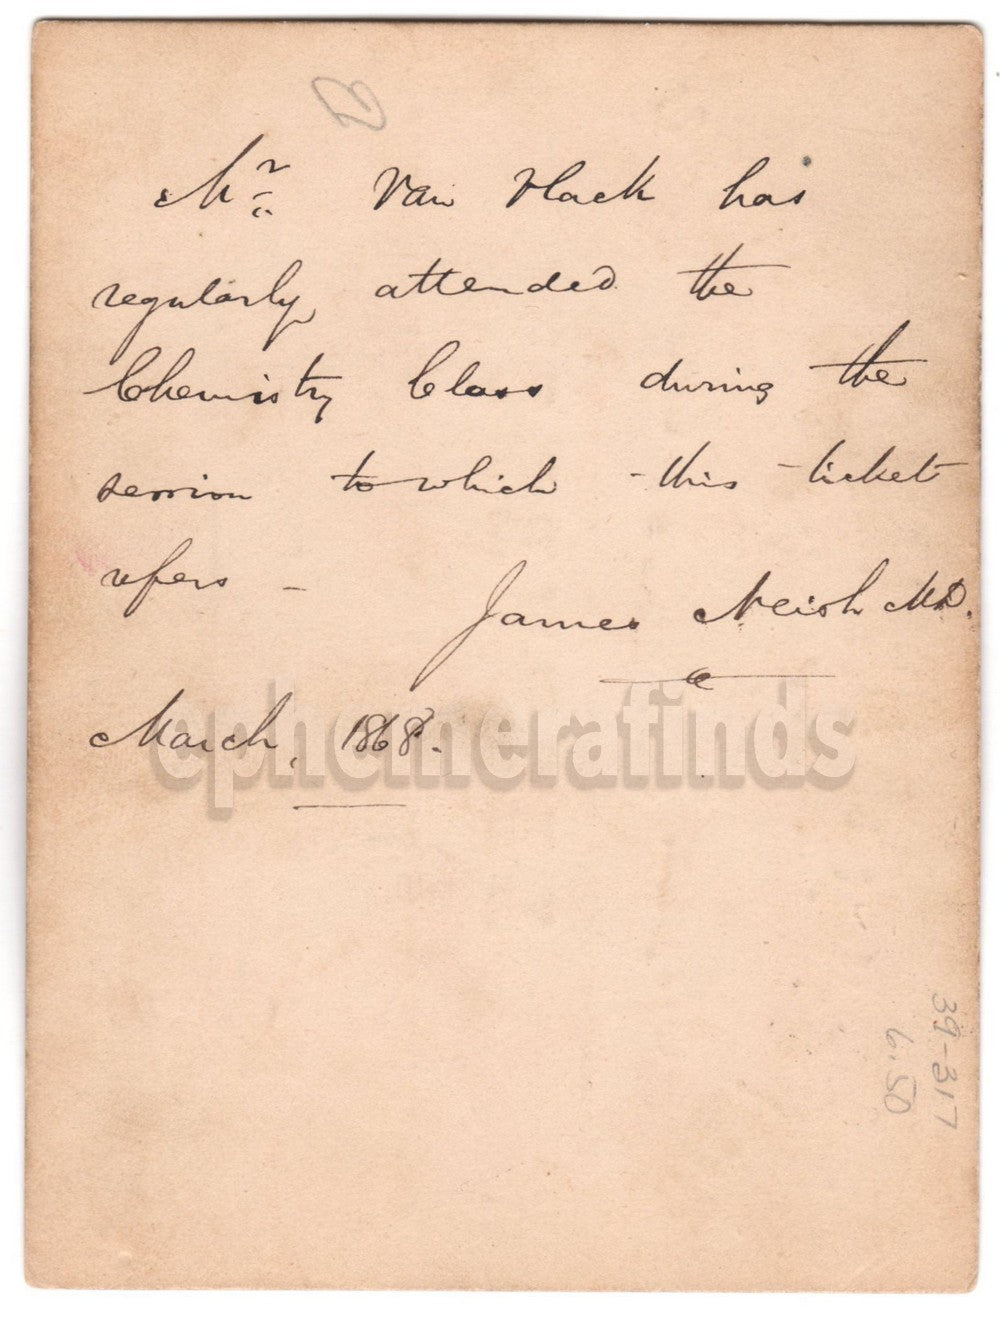 Mr. Van Vlack has
regularly attended the
Chemistry Class during the
session to which this ticket
refers –
James Neish MD.
March, 1868.
ephemerafinds
39-317
6.50